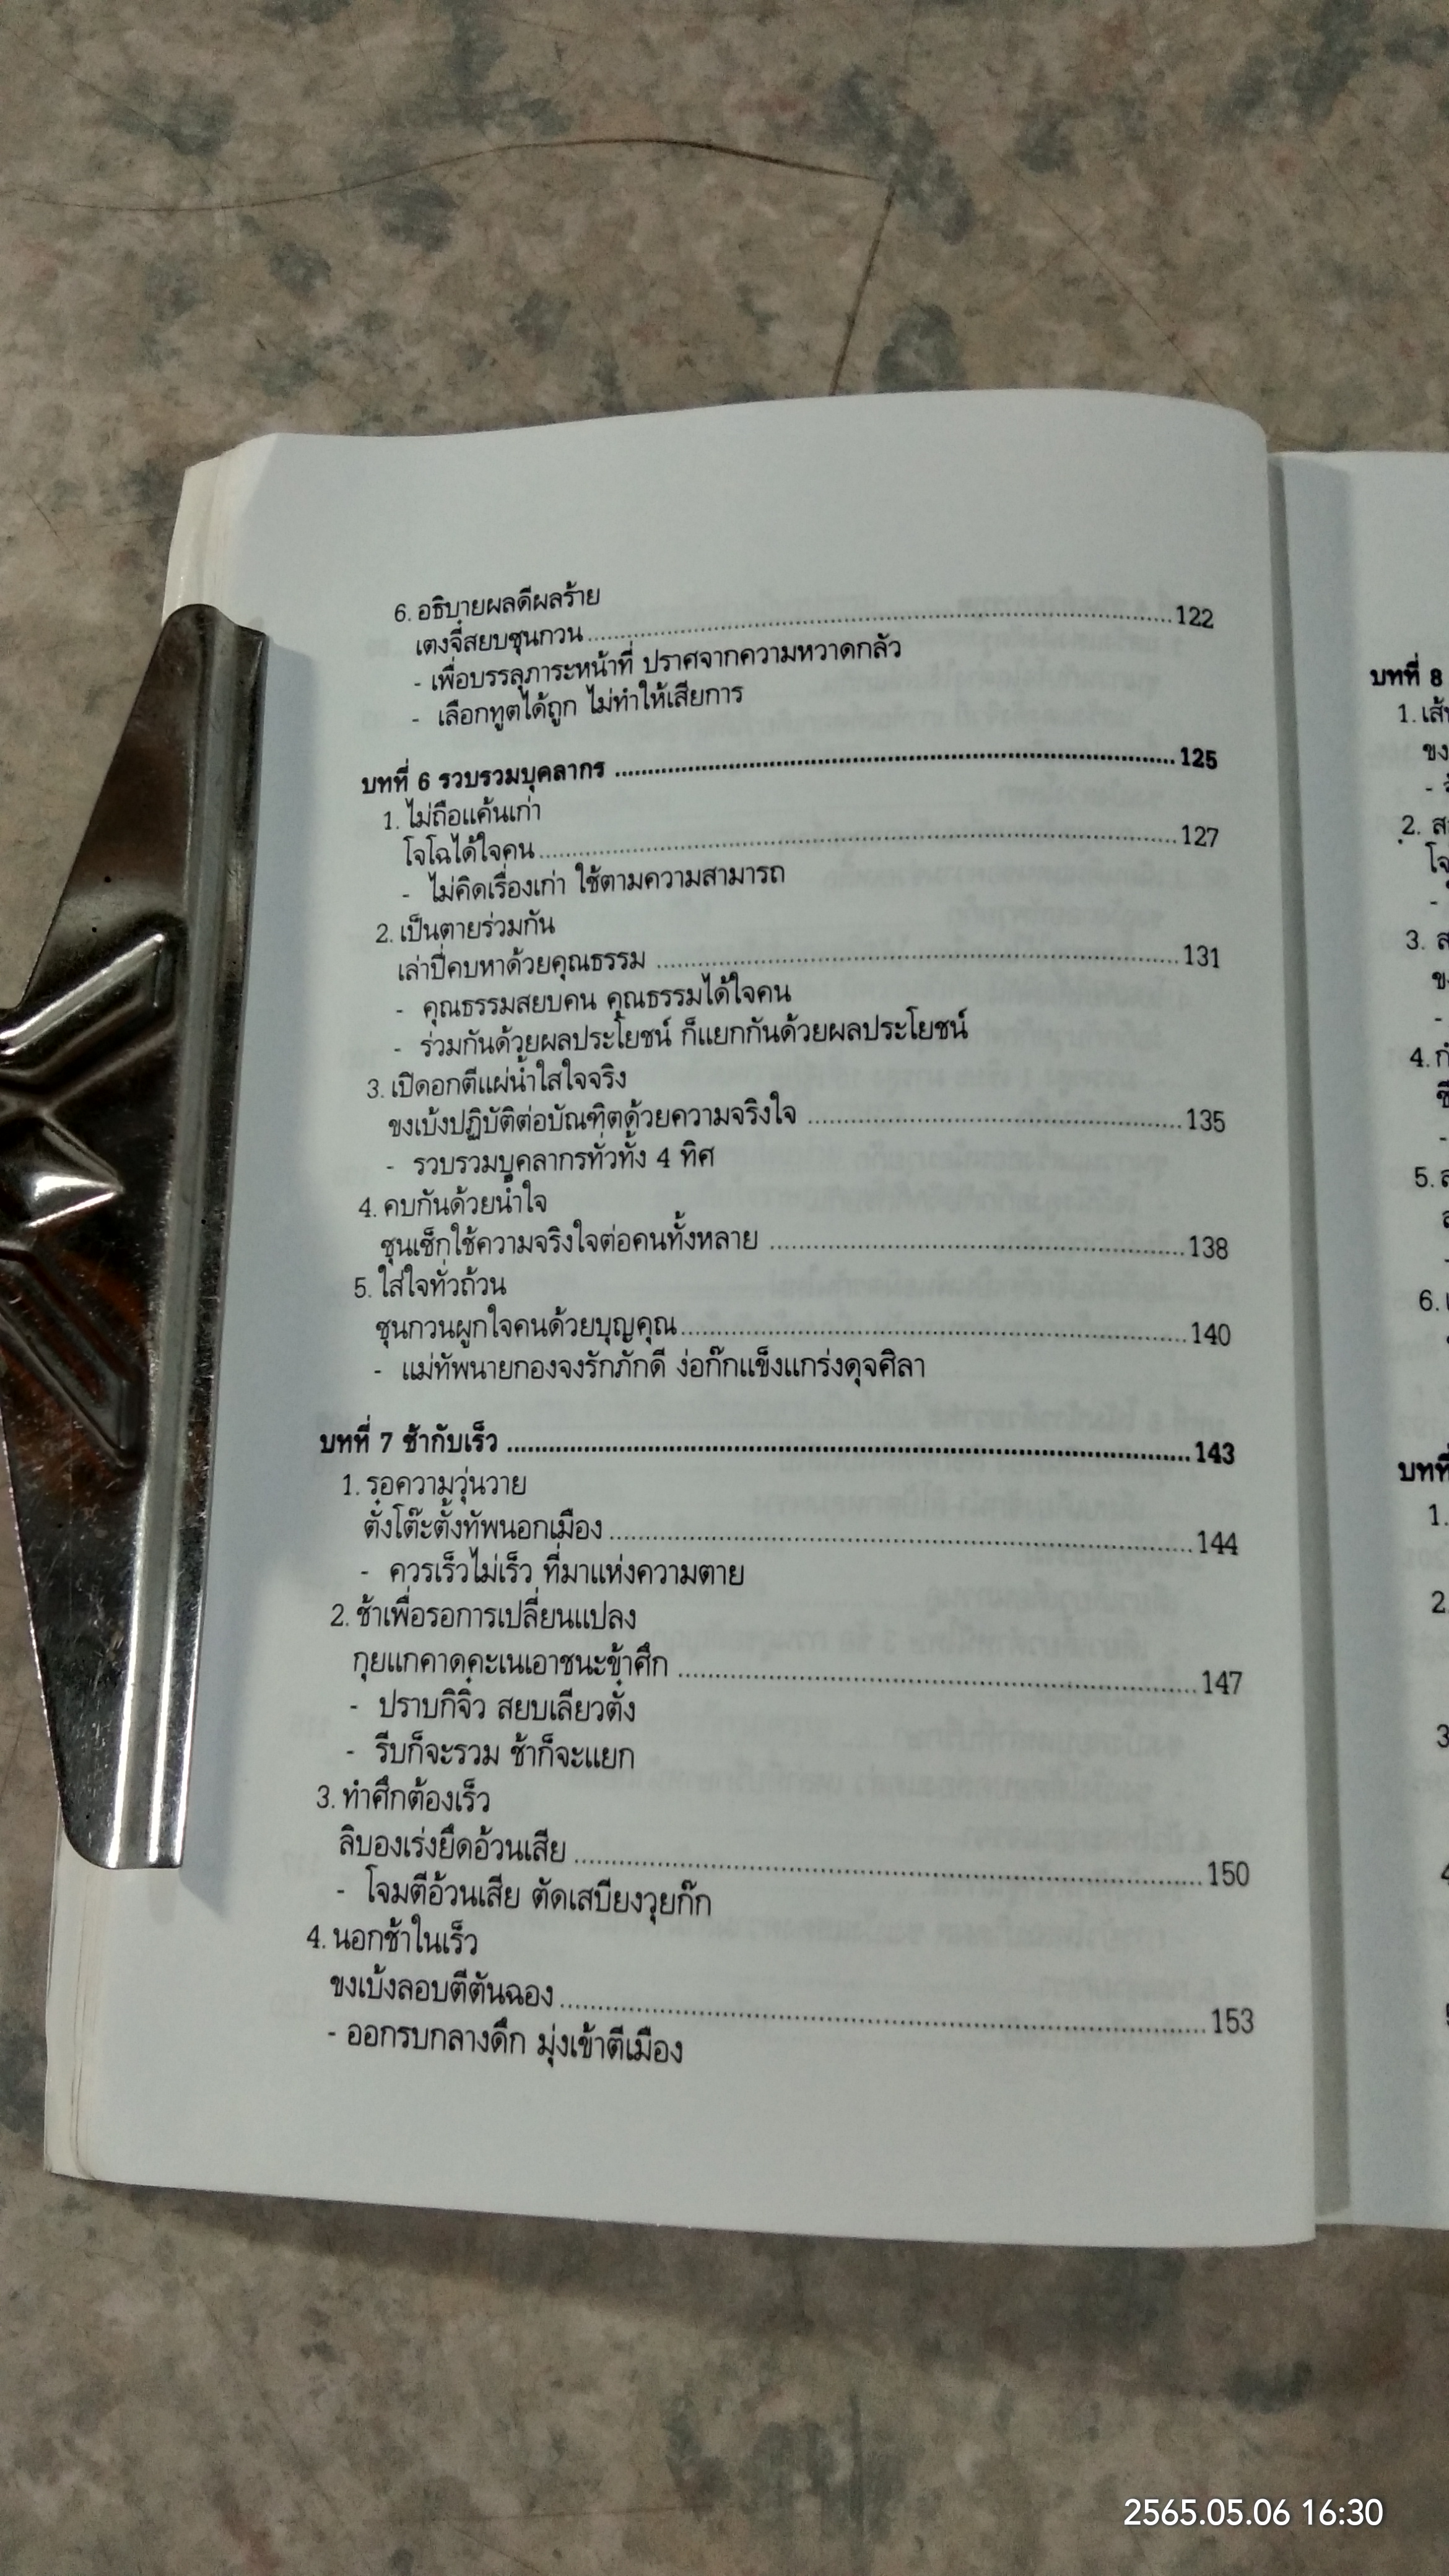 6. อธิบายผลดีผลร้าย
เตงจี๋สยบซุนกวน ..... 122
- เพื่อบรรลุภาระหน้าที่ ปราศจากความหวาดกลัว
- เลือกทูตได้ถูก ไม่ทำให้เสียการ
บทที่ 6 รวบรวมบุคลากร ..... 125
1. ไม่ถือแค้นเก่า
โจโฉได้ใจคน ..... 127
- ไม่คิดเรื่องเก่า ใช้ตามความสามารถ
2. เป็นตายร่วมกัน
เล่าปี่คบหาด้วยคุณธรรม ..... 131
- คุณธรรมสยบคน คุณธรรมได้ใจคน
- ร่วมกันด้วยผลประโยชน์ ก็แยกกันด้วยผลประโยชน์
3. เปิดอกตีแผ่น้ำใสใจจริง
ขงเบ้งปฏิบัติต่อบัณฑิตด้วยความจริงใจ ..... 135
- รวบรวมบุคลากรทั่วทั้ง 4 ทิศ
4. คบกันด้วยน้ำใจ
ซุนเซ็กใช้ความจริงใจต่อคนทั้งหลาย ..... 138
5. ใส่ใจทั่วถ้วน
ซุนกวนผูกใจคนด้วยบุญคุณ ..... 140
- แม่ทัพนายกองจงรักภักดี ง่อก๊กแข็งแกร่งดุจศิลา
บทที่ 7 ช้ากับเร็ว ..... 143
1. รอความวุ่นวาย
ตั๋งโต๊ะตั้งทัพนอกเมือง ..... 144
- ควรเร็วไม่เร็ว ที่มาแห่งความตาย
2. ช้าเพื่อรอการเปลี่ยนแปลง
กุยแกคาดคะเนเอาชนะข้าศึก ..... 147
- ปราบกิจิ๋ว สยบเลียวตั๋ง
- รีบก็จะรวม ช้าก็จะแยก
3. ทำศึกต้องเร็ว
ลิบองเร่งยึดอ้วนเสีย ..... 150
- โจมตีอ้วนเสีย ตัดเสบียงวุยก๊ก
4. นอกช้าในเร็ว
ขงเบ้งลอบตีตันฉอง ..... 153
- ออกรบกลางดึก มุ่งเข้าตีเมือง
บทที่ 8
1.
2.
3.
4.
5.
6.
บทที่
1.
2
3
2565.05.06 16:30